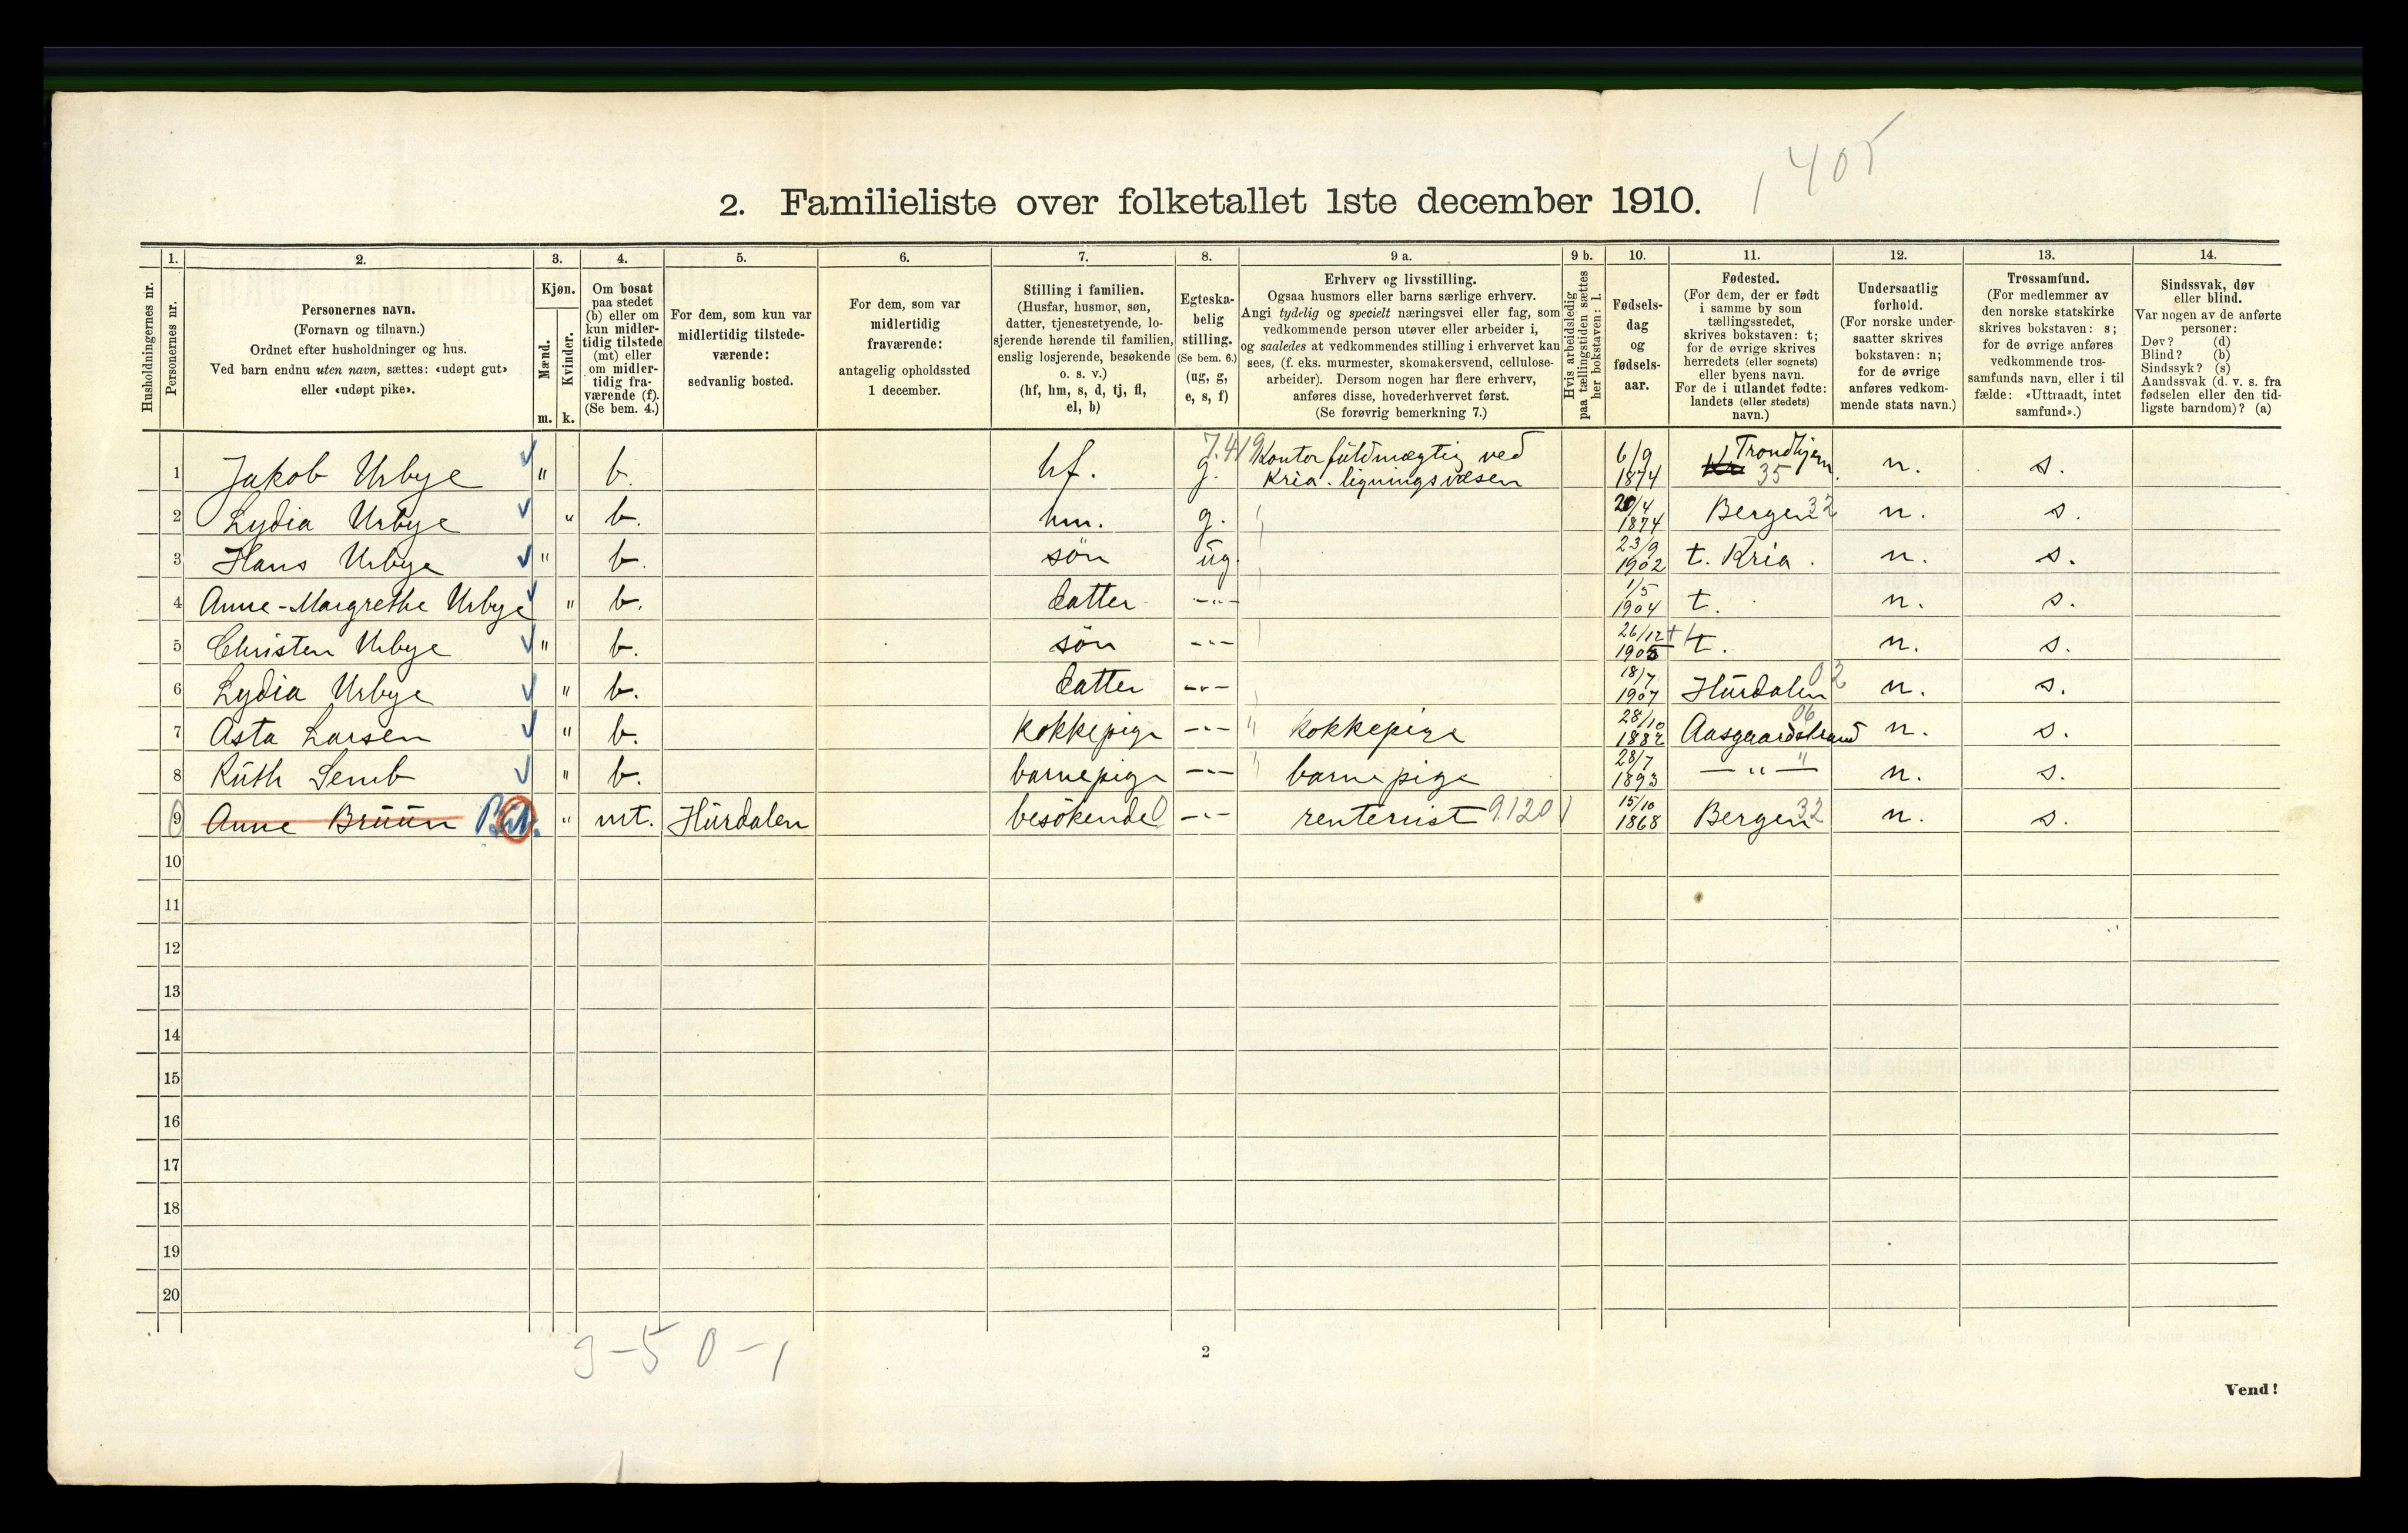 1405
2. Familieliste over folketallet 1ste december 1910.
Husholdningernes nr.
1. Personernes nr.
2. Personernes navn.
(Fornavn og tilnavn.)
Ordnet efter husholdninger og hus.
Ved barn endnu uten navn, sættes: «udøpt gut»
eller «udøpt pike».
3. Kjøn.
Mænd. m.
Kvinder. k.
4. Om bosat
paa stedet
(b) eller om
kun midler-
tidig tilstede
(mt) eller
om midler-
tidig fra-
værende (f).
(Se bem. 4.)
5. For dem, som kun var
midlertidig tilstede-
værende:
sedvanlig bosted.
6. For dem, som var
midlertidig
fraværende:
antagelig opholdssted
1 december.
7. Stilling i familien.
(Husfar, husmor, søn,
datter, tjenestetyende, lo-
sjerende hørende til familien,
enslig losjerende, besøkende
o. s. v.)
(hf, hm, s, d, tj, fl,
el, b)
8. Egteska-
belig
stilling.
(Se bem. 6.)
(ug, g,
e, s, f)
9 a. Erhverv og livsstilling.
Ogsaa husmors eller barns særlige erhverv.
Angi tydelig og specielt næringsvei eller fag, som
vedkommende person utøver eller arbeider i,
og saaledes at vedkommendes stilling i erhvervet kan
sees, (f. eks. murmester, skomakersvend, cellulose-
arbeider). Dersom nogen har flere erhverv,
anføres disse, hovederhvervet først.
(Se forøvrig bemerkning 7.)
9 b. Hvis arbeidsledig
paa tællingstiden sættes
her bokstaven: l.
10. Fødsels-
dag
og
fødsels-
aar.
11. Fødested.
(For dem, der er født
i samme by som
tællingsstedet,
skrives bokstaven: t;
for de øvrige skrives
herredets (eller sognets)
eller byens navn.
For de i utlandet fødte:
landets (eller stedets)
navn.)
12. Undersaatlig
forhold.
(For norske under-
saatter skrives
bokstaven: n;
for de øvrige
anføres vedkom-
mende stats navn.)
13. Trossamfund.
(For medlemmer av
den norske statskirke
skrives bokstaven: s;
for de øvrige anføres
vedkommende tros-
samfunds navn, eller i til
fælde: «Uttraadt, intet
samfund».)
14. Sindssvak, døv
eller blind.
Var nogen av de anførte
personer:
Døv? (d)
Blind? (b)
Sindssyk? (s)
Aandssvak (d. v. s. fra
fødselen eller den tid-
ligste barndom)? (a)
1 Jakob Urbye " b. hf. g. 7.419 Kontorfuldmægtig ved Kria. ligningsvæsen 6/9 1874 Kr Trondhjem 35 n. s.
2 Lydia Urbye " b. hm. g. 20/4 1874 Bergen 32 n. s.
3 Hans Urbye " b. sön ug. 23/9 1902 t. Kria. n. s.
4 Anne-Margrethe Urbye " b. datter -"- 1/5 1904 t. n. s.
5 Christen Urbye " b. sön -"- 26/12 1905 t. n. s.
6 Lydia Urbye " b. datter -"- 18/7 1907 Hurdalen 02 n. s.
7 Asta Larsen " b. kokkepige -"- kokkepige 28/10 1882 Aasgaardstrand 06 n. s.
8 Ruth Semb " b. barnepige -"- barnepige 28/7 1893 -"- n. s.
9 Anne Bruun " mt. Hurdalen besökende -"- renterist 9.120 15/10 1868 Bergen 32 n. s.
10
11
12
13
14
15
16
17
18
19
20
3-5 0-1
2
Vend!